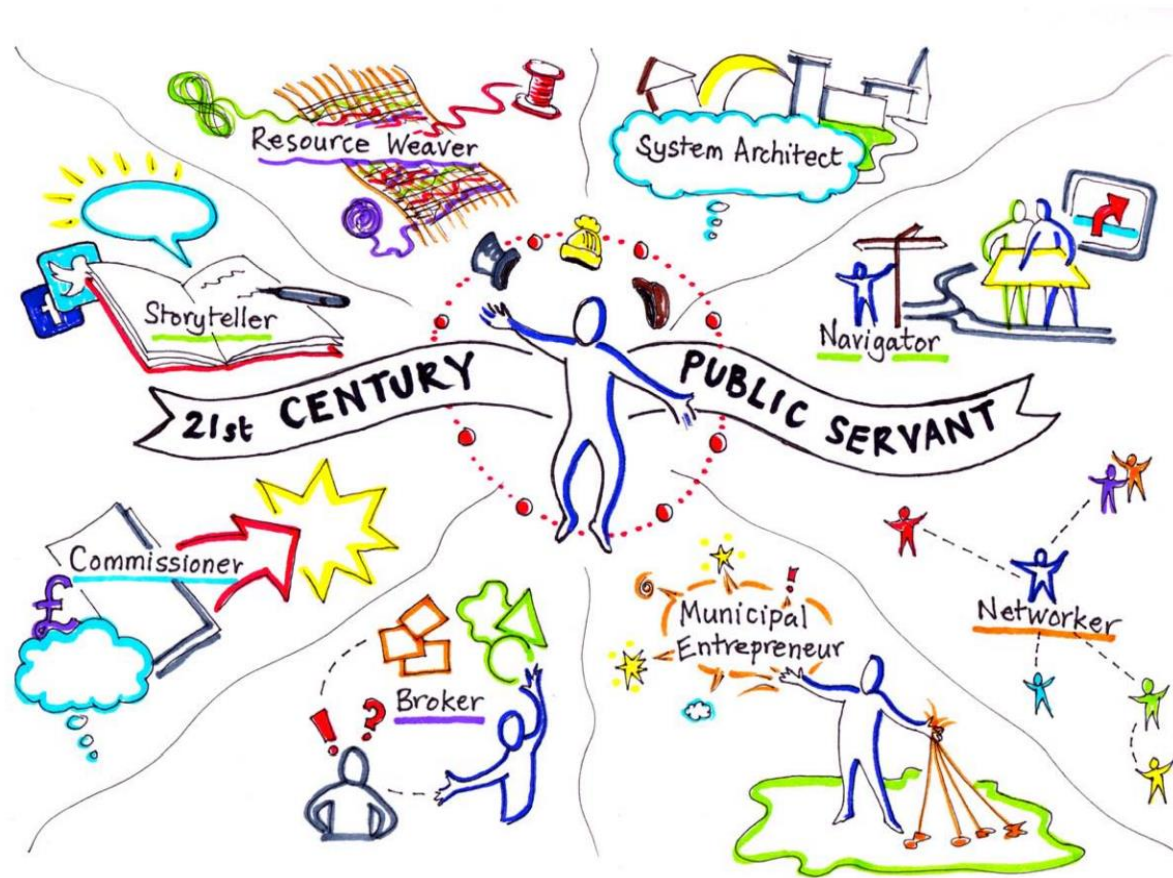 Resource Weaver
System Architect
Storyteller
Navigator
21st CENTURY PUBLIC SERVANT
Commissioner
£
Broker
! ?
Municipal
Entrepreneur
!
Networker
f